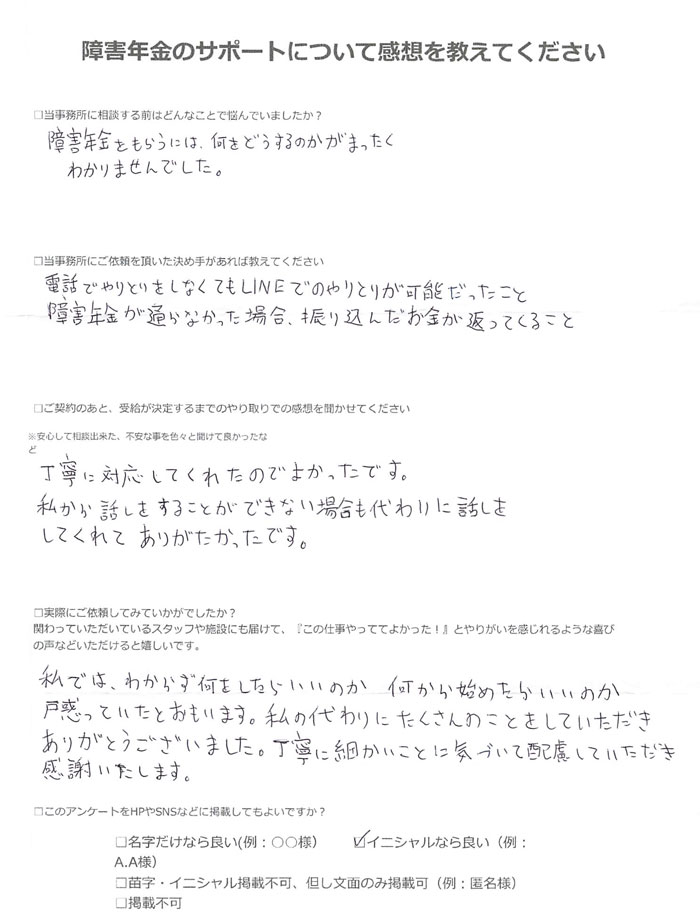 障害年金のサポートについて感想を教えてください
□当事務所に相談する前はどんなことで悩んでいましたか？
障害年金をもらうには、何をどうするのかがまったく
わかりませんでした。
□当事務所にご依頼を頂いた決め手があれば教えてください
電話でやりとりをしなくてもLINEでのやりとりが可能だったこと
障害年金が通らなかった場合、振り込んだお金が返ってくること
□ご契約のあと、受給が決定するまでのやり取りでの感想を聞かせてください
※安心して相談出来た、不安な事を色々と聞けて良かったな
ど
丁寧に対応してくれたのでよかったです。
私から話しをすることができない場合も代わりに話しを
してくれて ありがたかったです。
□実際にご依頼してみていかがでしたか？
関わっていただいているスタッフや施設にも届けて、『この仕事やっててよかった！』とやりがいを感じれるような喜び
の声などいただけると嬉しいです。
私では、わからず何をしたらいいのか 何から始めたらいいのか
戸惑っていたとおもいます。私の代わりにたくさんのことをしていただき
ありがとうございました。丁寧に細かいことに気づいて配慮していただき
感謝いたします。
□このアンケートをHPやSNSなどに掲載してもよいですか？
□名字だけなら良い(例：〇〇様） ☑イニシャルなら良い（例：
A.A様）
□苗字・イニシャル掲載不可、但し文面のみ掲載可（例：匿名様）
□掲載不可